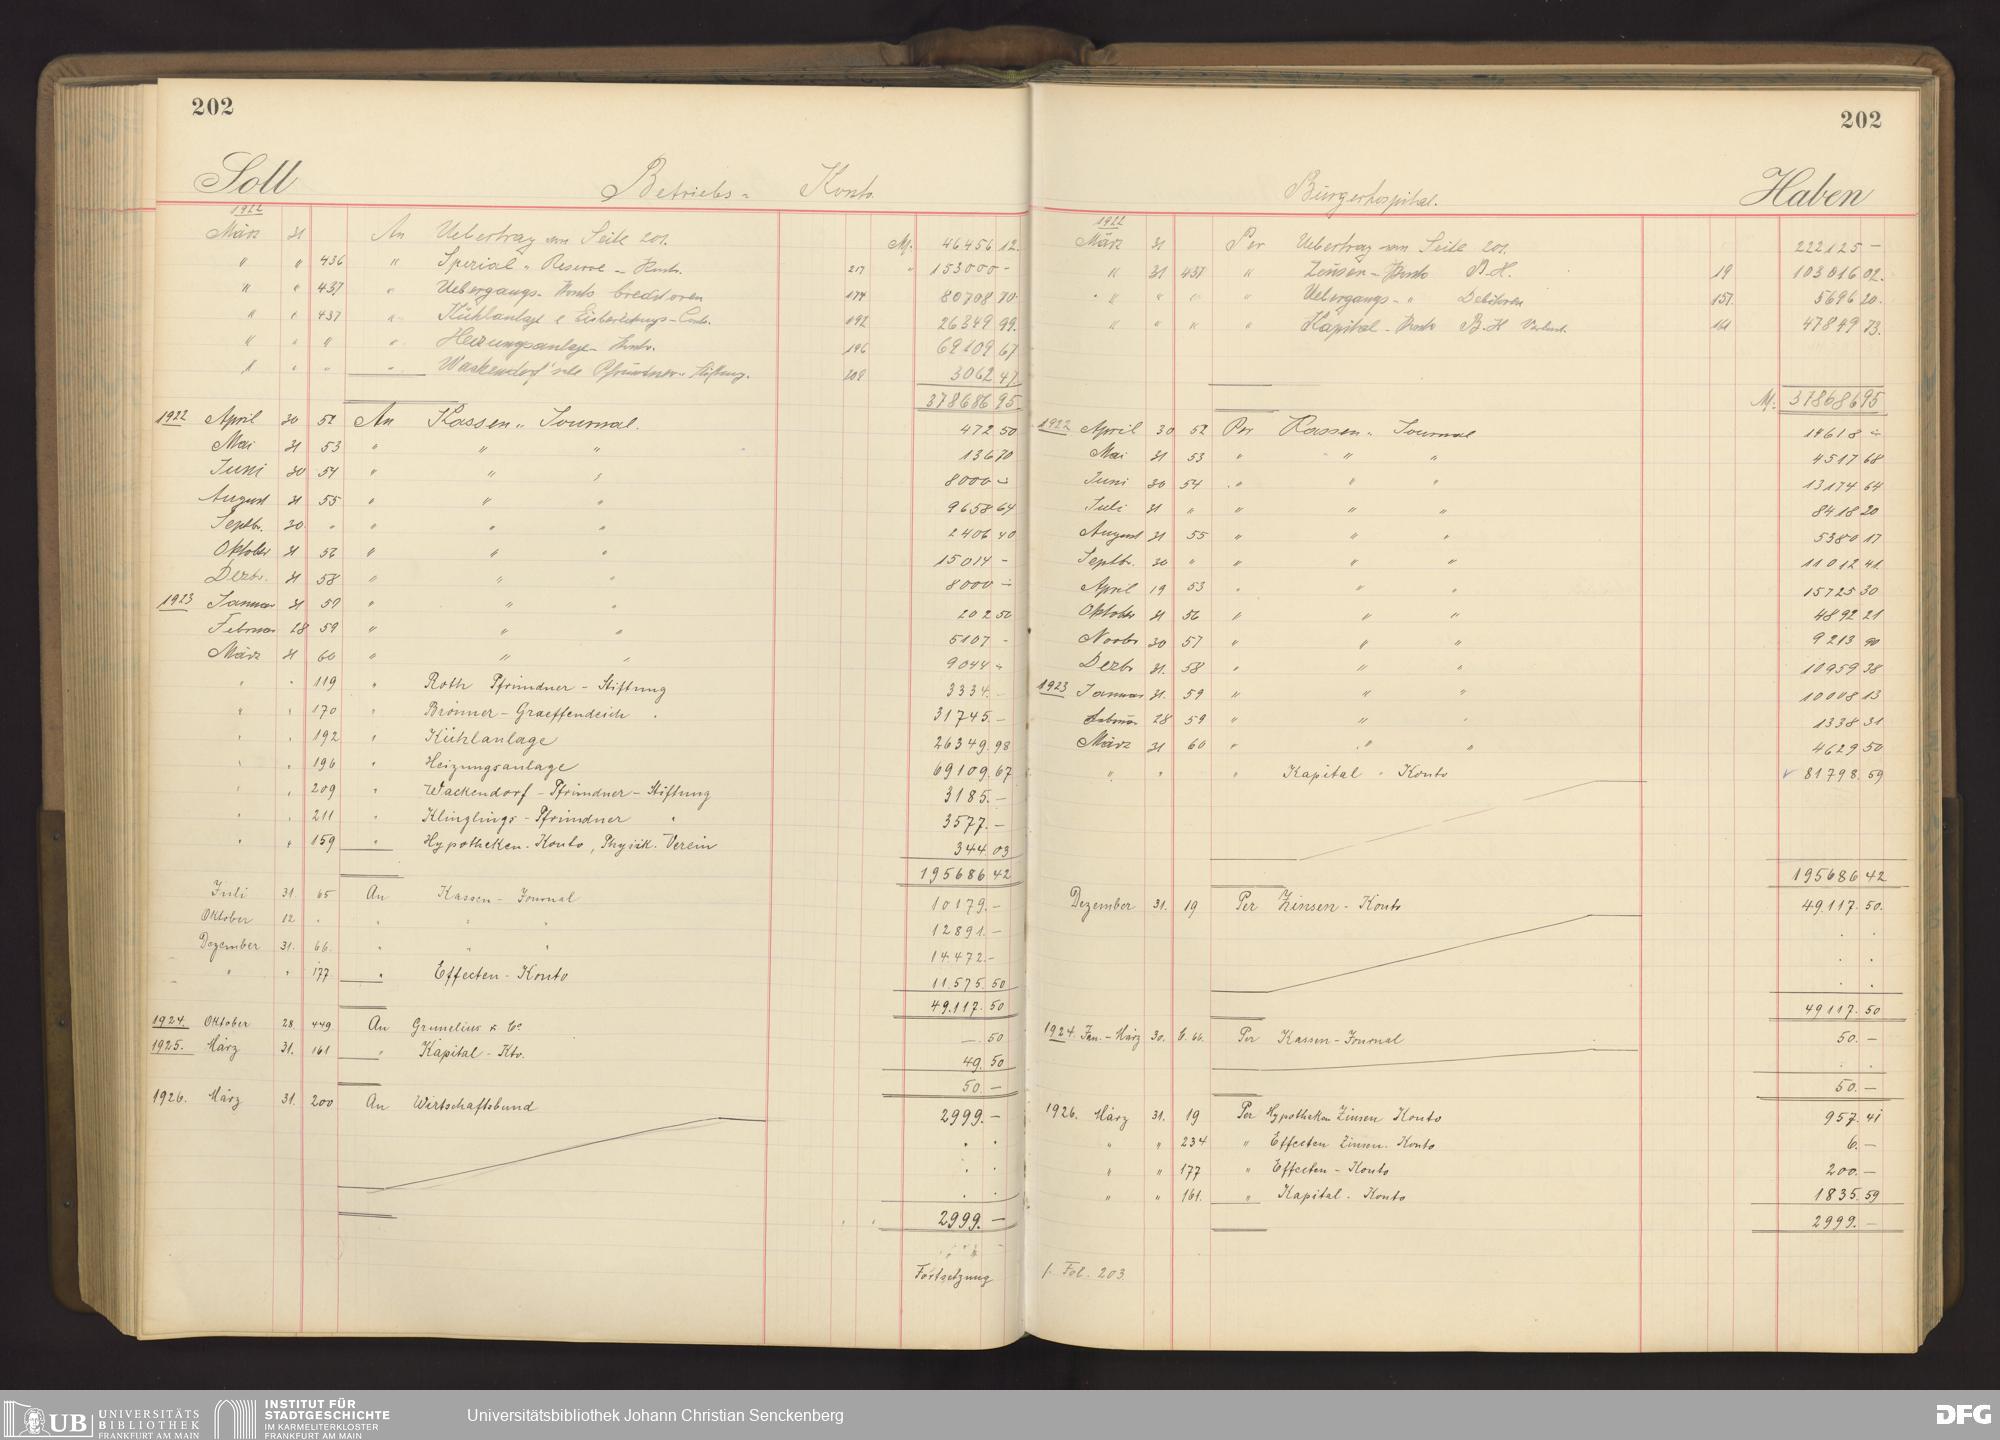 202
Soll Betriebs- Konto
1922
März 31 An Uebertrag von Seite 201. M. 46456 12.
" " 436 " Spezial " Reserve - Konto. 217 " 153000 -
" " 437 " Uebergangs- Konto Creditoren 174 80708 70
" " 437 " Kühlanlage 192 26349 99.
" " " " Heizungsanlage - Konto. 196 69109 67
" " " " Pfründner-Stiftung. 209 3062 47
378686 95
1922 April 30 52 An Kassen " Journal. 472 50
Mai 31 53 " " " 136 70
Juni 30 54 " " " 8000 -
August 31 55 " " " 9658 64
Septbr. 30 " " " " 2406 40
Oktober 31 56 " " " 15014 -
Dezbr. 31 58 " " " 8000 -
1923 Januar 31 59 " " " 202 50
Februar 28 59 " " " 5107 -
März 31 60 " " " 9044 -
" " 119 " Roth Pfründner - Stiftung 3334. -
" " 170 " Brönner - Graeffendeich " 31745. -
" " 192 " Kühlanlage 26349. 98
" " 196 " Heizungsanlage 69109. 67
" " 209 " Wackendorf - Pfründner - Stiftung 3185. -
" " 211 " Klinglings - Pfründner " 3577. -
" " 159 " Hypotheken-Konto, Physik. Verein 344. 03
195686 42
Juli 31. 65 An Kassen - Journal 10179. -
Oktober 12 " " " " 12891. -
Dezember 31. 66. " " " 14.472. -
" " 177 " Effecten - Konto 11.575. 50
49.117. 50
1924. Oktober 28. 449. An Grunelius & Co -. 50
1925. März 31. 161 " Kapital - Kto. 49. 50
50. -
1926. März 31. 200 An Wirtschaftsbund 2999. -
2999. -
Fortsetzung
202
Bürgerhospital. Haben
1922
März 31 Per Uebertrag von Seite 201. 222125 -
" 31 437 " Zinsen - Konto B.H. 19 103016 02.
" " " " Uebergangs- " Debitoren 157. 5696 20.
" " " " Kapital - Konto B.H 161 47849 73.
M. 378686 95
1922 April 30 52 Per Kassen " Journal 14618 -
Mai 31 53 " " " 4517 68
Juni 30 54 " " " 13174 64
Juli 31 " " " " 8418 20
August 31 55 " " " 5380 17
Septbr. 30 " " " " 11012 41
April 19 53 " " " 15725 30
Oktober 31 56 " " " 4892 21
Novbr 30 57 " " " 9213 90
Dezbr 31. 58 " " " 10959 38
1923 Januar 31. 59 " " " 10008 13
Februar 28 59 " " " 1338 31
März 31 60 " " " 4629 50
" " " Kapital " Konto 81798. 59
195686 42
Dezember 31. 19 Per Zinsen - Konto 49.117. 50.
49117. 50
1924. Jan. - März 30. C. 66. Per Kassen - Journal 50. -
50. -
1926. März 31. 19 Per Hypotheken Zinsen Konto 957. 41
" " 234 " Effecten Zinsen. Konto 6. -
" " 177 " Effecten - Konto 200. -
" " 161. " Kapital. Konto 1835. 59
2999. -
f. Fol. 203.
UB UNIVERSITÄTS BIBLIOTHEK FRANKFURT AM MAIN
INSTITUT FÜR STADTGESCHICHTE IM KARMELITERKLOSTER FRANKFURT AM MAIN
Universitätsbibliothek Johann Christian Senckenberg
DFG